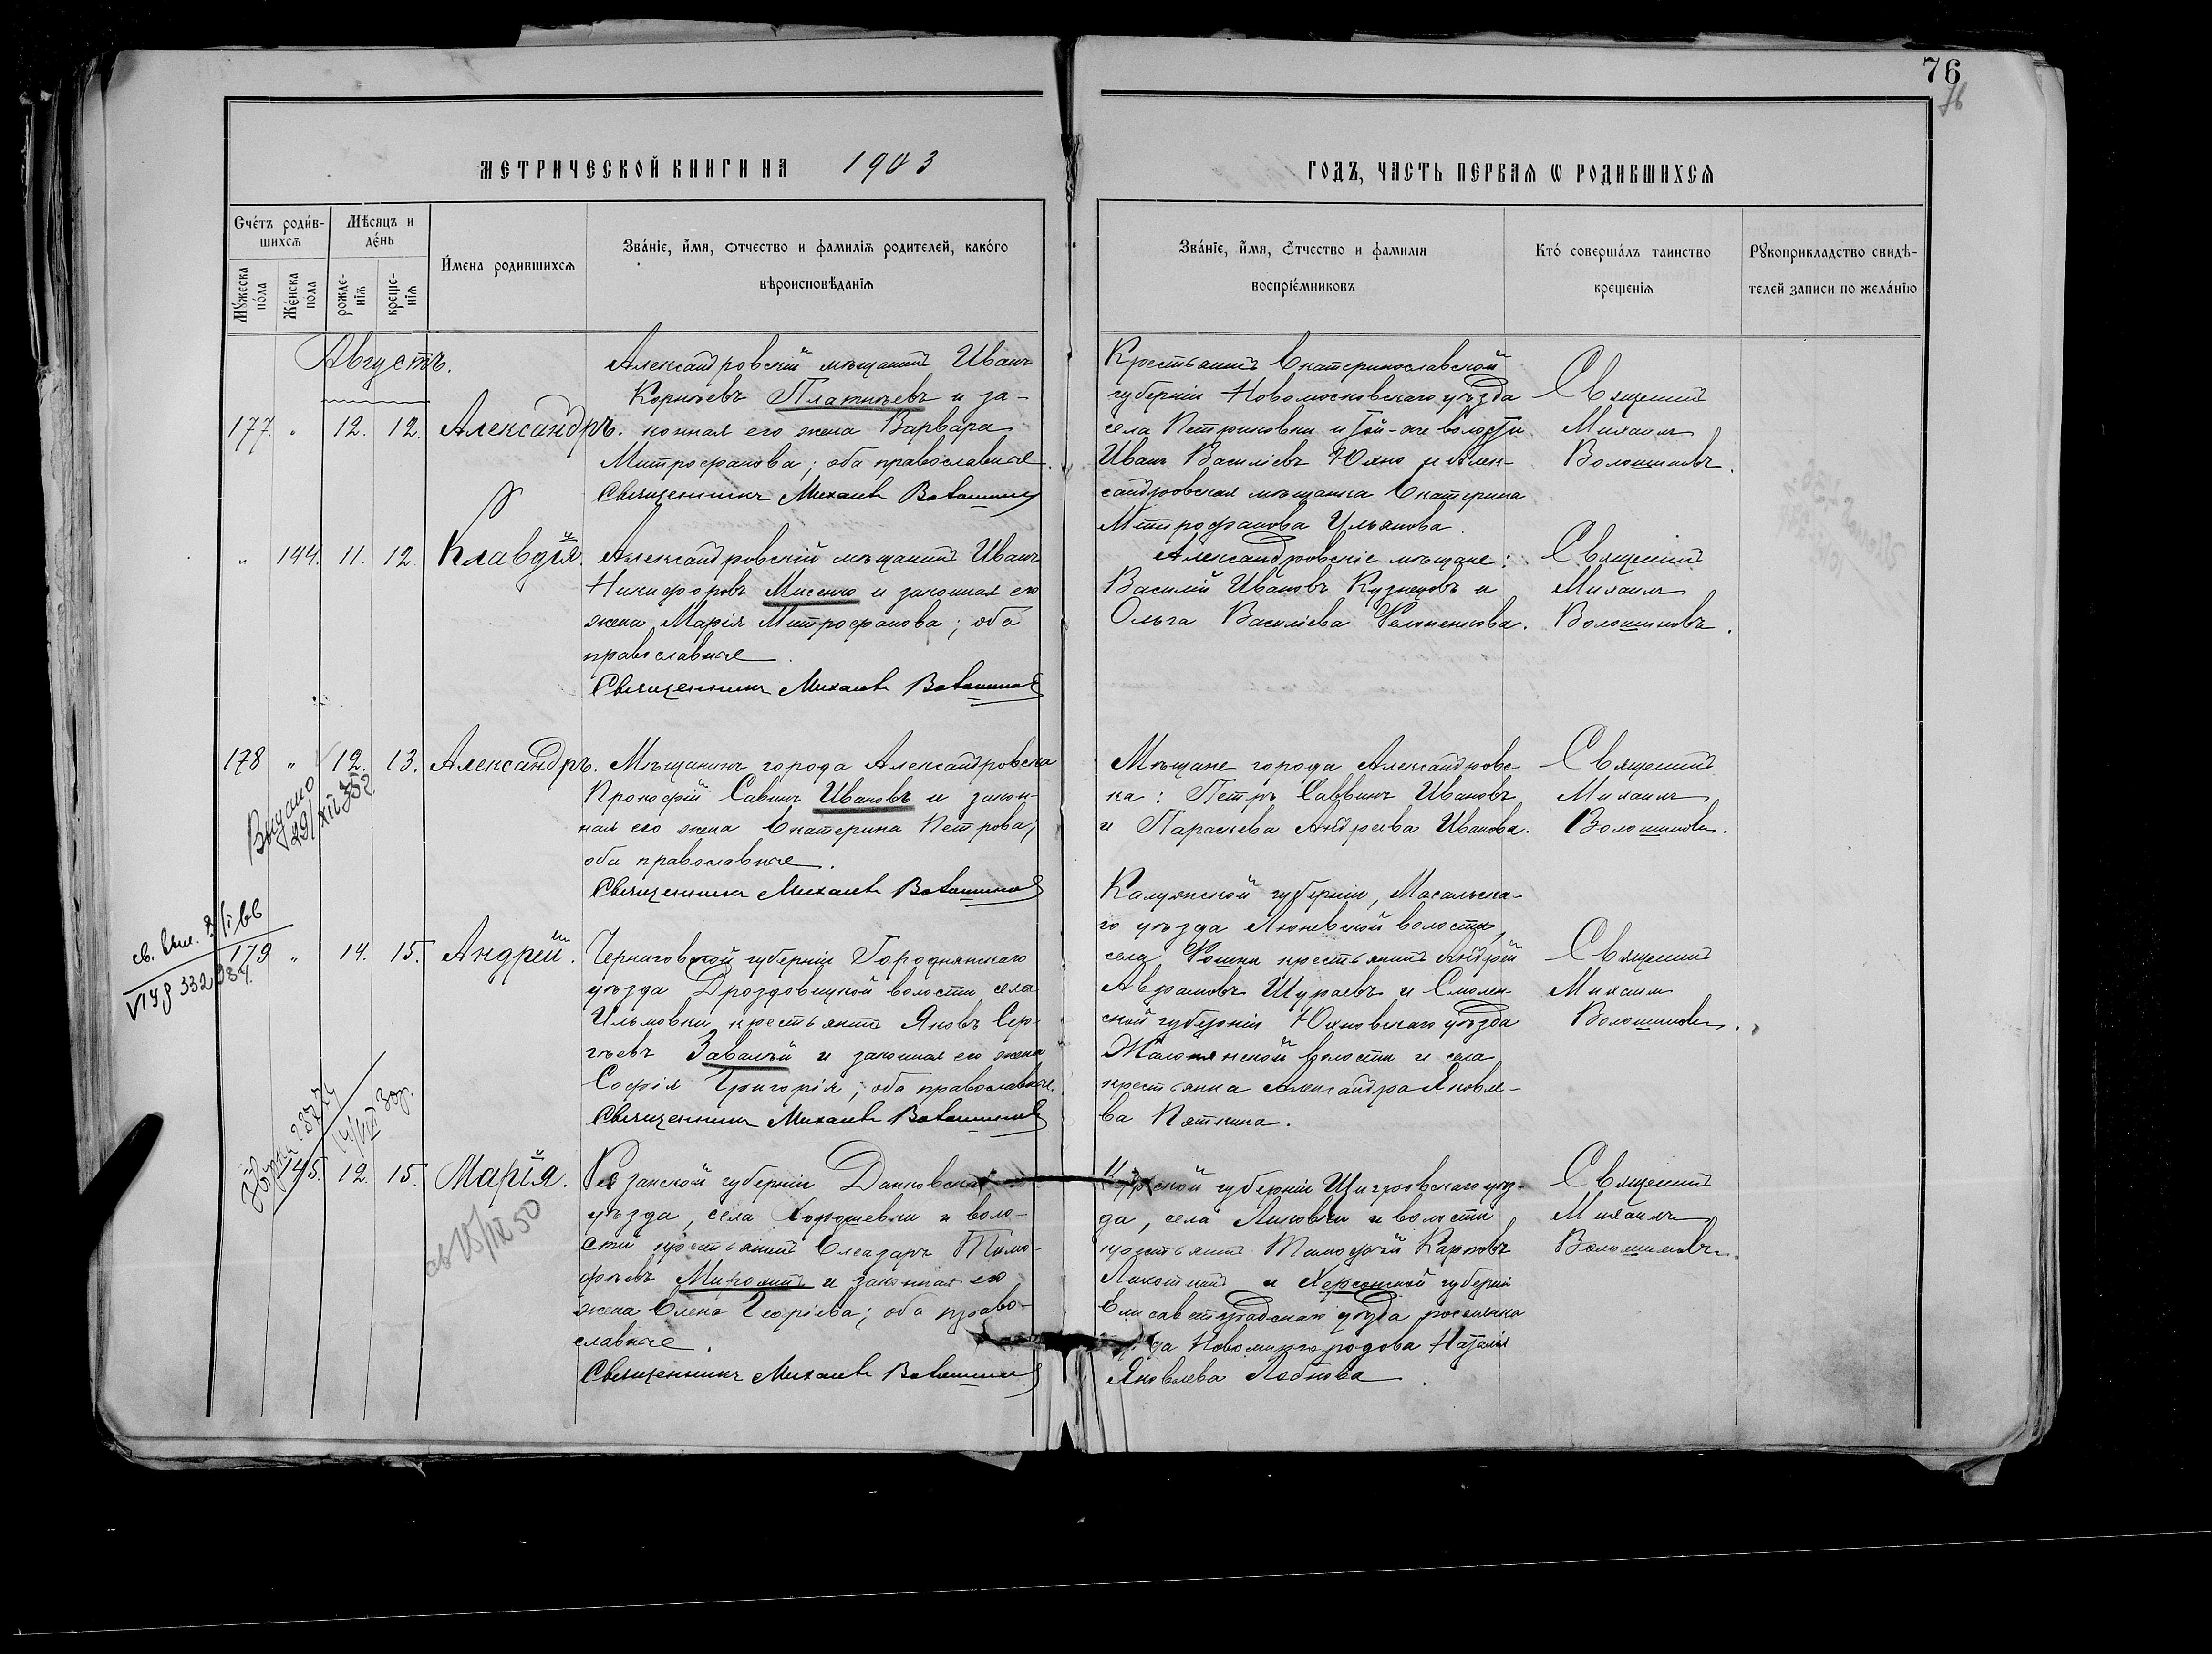 76
76
МЕТРИЧЕСКОЙ КНИГИ НА 1903
ГОДЪ, ЧАСТЬ ПЕРВАЯ Ѡ РОДИВШИХСЯ
Счéтъ роди́в-
шихсѧ
Мꙋ́жеска
по́ла
Же́нска
пола
Мѣсяцъ и
де́нь
рожде-
нїѧ
креще-
нїѧ
И́мена родившихсѧ
Зва́нїе, и́мя, ѻтчество и фамилїѧ родителей, како́го
вѣроисповѣ́данїѧ
Зва́нїе, и́мя, ѻ́тчество и фамилїя
воспрїе́мниковъ
Кто́ совершáлъ таинство
крещенїѧ
Рꙋкоприкладство свидѣ-
телей записи по жела́нїю
Августъ.
177. " 12. 12. Александръ.
Александровскій мѣщанинъ Иванъ
Корнѣевъ Платнѣевъ и за-
конная его жена Варвара
Митрофанова; оба православные.
Священникъ Михаилъ Волошинов
Крестьянинъ Екатеринославской
губерніи Новомосковскаго уѣзда
села Петриковки и той-же волости
Иванъ Василіевъ Юхно и Алек-
сандровская мѣщанка Екатерина
Митрофанова Ульянова.
Священникъ
Михаилъ
Волошиновъ.
" 144. 11. 12. Клавдія.
Александровскій мѣщанинъ Иванъ
Никифоровъ Мисенко и законная его
жена Марія Митрофанова; оба
православные.
Священникъ Михаилъ Волошинов
Александровскіе мѣщане:
Василій Ивановъ Кузнецовъ и
Ольга Василіева
Священникъ
Михаилъ
Волошиновъ.
178 " 12. 13. Александръ.
Выдано
29/XII 352
Мѣщанинъ города Александровска
Прокофій Савинъ Ивановъ и закон-
ная его жена Екатерина Петрова;
оба православные.
Священникъ Михаилъ Волошинов
Мѣщане города Александровс-
ка: Петръ Саввинъ Ивановъ
и Параскева Андреева Иванова.
Священникъ
Михаилъ
Волошиновъ.
179 " 14. 15. Андрей.
332984
Черниговской губерніи Городнянскаго
уѣзда Дроздовицкой волости села
Ильмовки крестьянинъ Яковъ Сер-
гѣевъ Завалѣй и законная его жена
Софія Григорія; оба православные.
Священникъ Михаилъ Волошинов
Калужской губерніи, Масальска-
го уѣзда волости,
села крестьянинъ Андрей
Аврамовъ Шураевъ и Смолен-
ской губерніи Юхновскаго уѣзда
волости и села
крестьянка Александра Яковле-
ва Пяткина.
Священникъ
Михаилъ
Волошиновъ.
145. 12. 15. Марія.
св 15/IX 50
Резанской губерніи Данковска
уѣзда, села и воло-
сти крестьянинъ Елеазаръ Тимо-
фѣевъ Миронинъ и законная его
жена Елена Георгіева; оба право-
славные.
Священникъ Михаилъ Волошинов
ской губерніи Щигровскаго уѣз-
да, села и волости
крестьянинъ Тимофей Карповъ
и Херсонской губерніи
Елисаветградскаго уѣзда поселянка
Новомиргородова Наталія
Яковлева Лобкова.
Священникъ
Михаилъ
Волошиновъ.